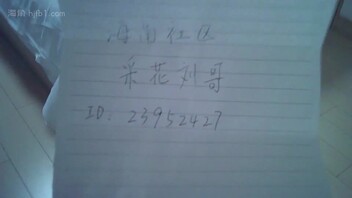 海角 hjb1.com
海角社区
采花刘哥
ID: 23952427